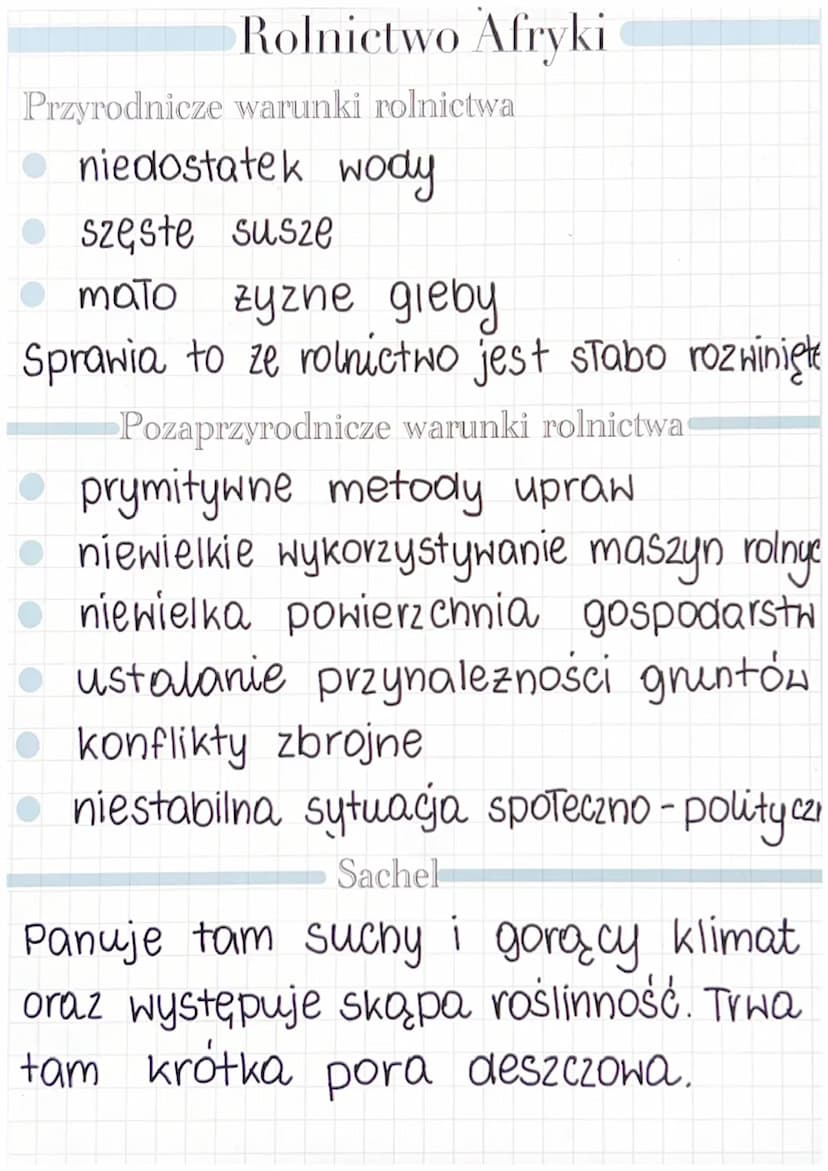 Rolnictwo Afryki
Przyrodnicze warunki rolnictwa
niedostatek wody
szęste susze
mało żyzne gleby
Sprawia to że rolnictwo jest słabo rozwinięte
Pozaprzyrodnicze warunki rolnictwa
prymitywne metody upraw
niewielkie wykorzystywanie maszyn rolnyc
niewielka powierzchnia gospodarstw
ustalanie przynależności gruntów
konflikty zbrojne
niestabilna sytuacja społeczno-polityczn
Sachel
Panuje tam suchy i gorący klimat
oraz występuje skąpa roślinność. Trwa
tam krótka pora deszczowa.